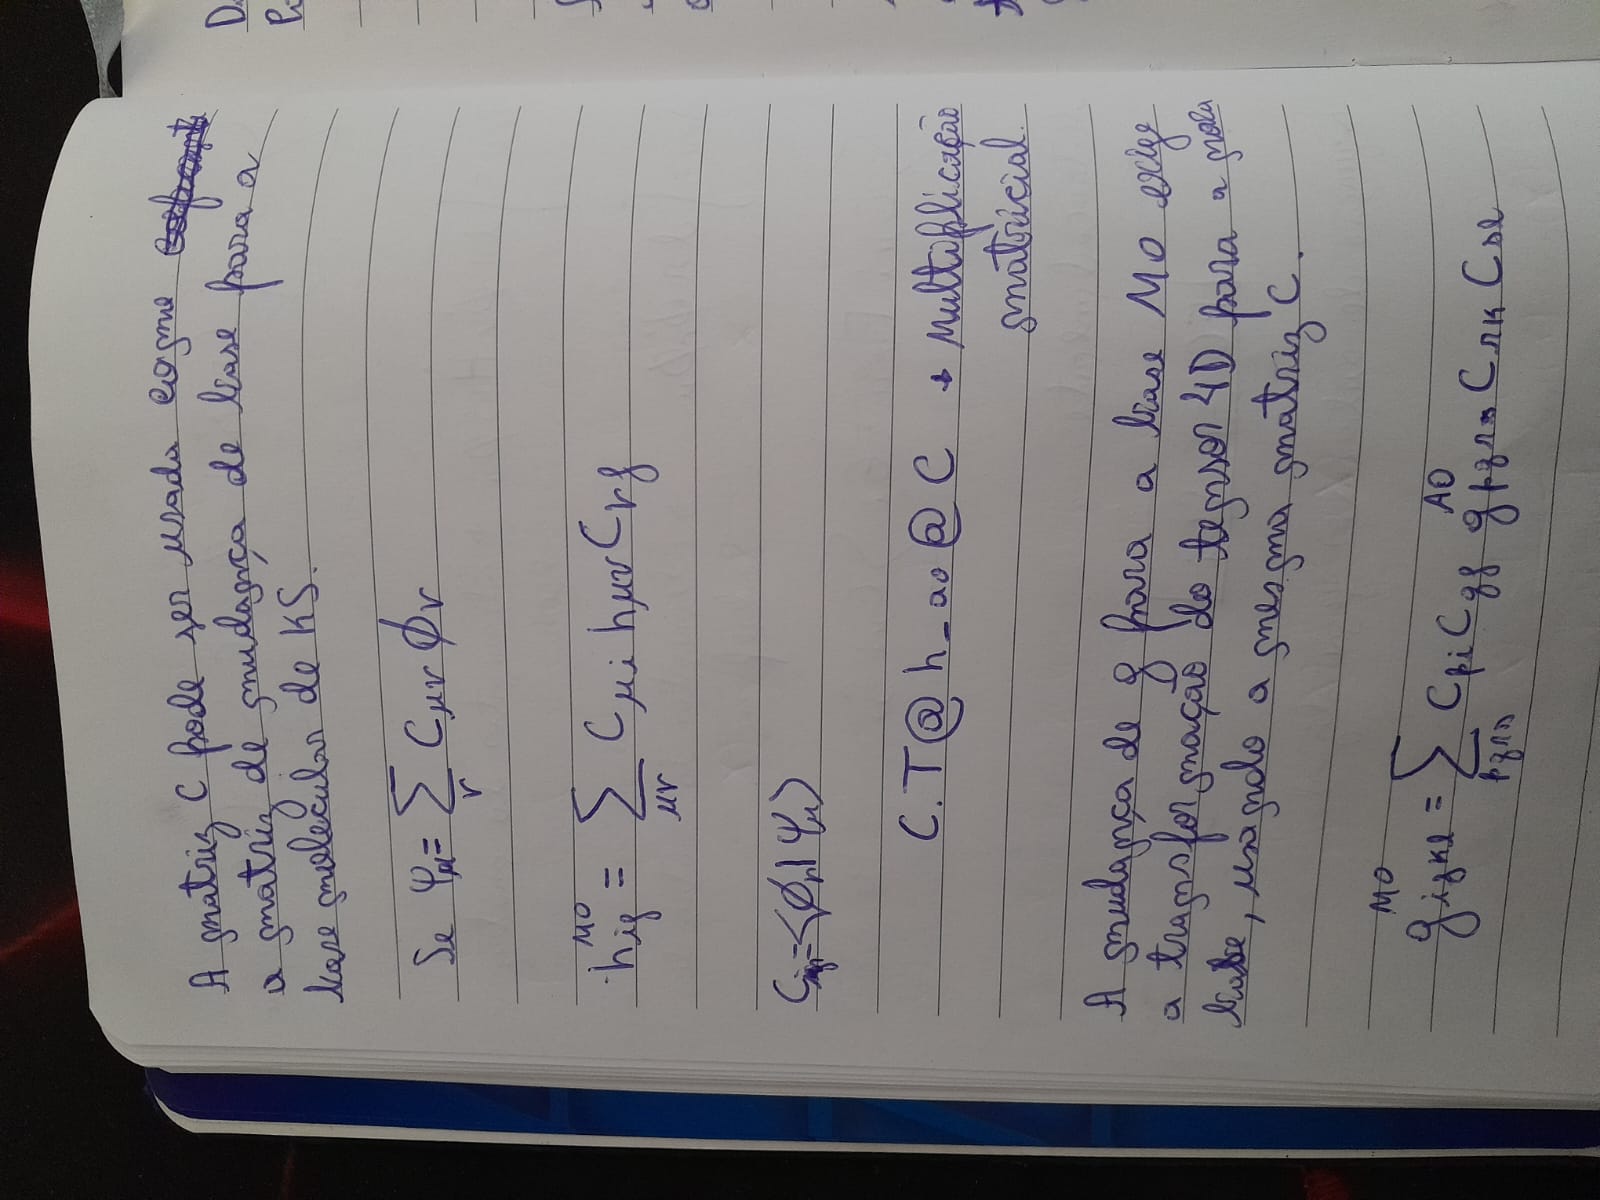 A matriz C pode ser usada como
a matriz de mudança de base para a
base molecular de KS.
Se ψμ = Σ Cμν ϕν
ν
MO
hij = Σ Cμi hμν Cνj
μν
= <ϕν| ψμ>
C.T@ h_ao @ C → Multiplicação
matricial.
A mudança de g para a base MO exige
a transformação do tensor 4D para a nova
base, usando a mesma matriz C.
MO
gijkl = Σ Cpi Cqj gpqrs Crk Csl
AO
pqrs
D